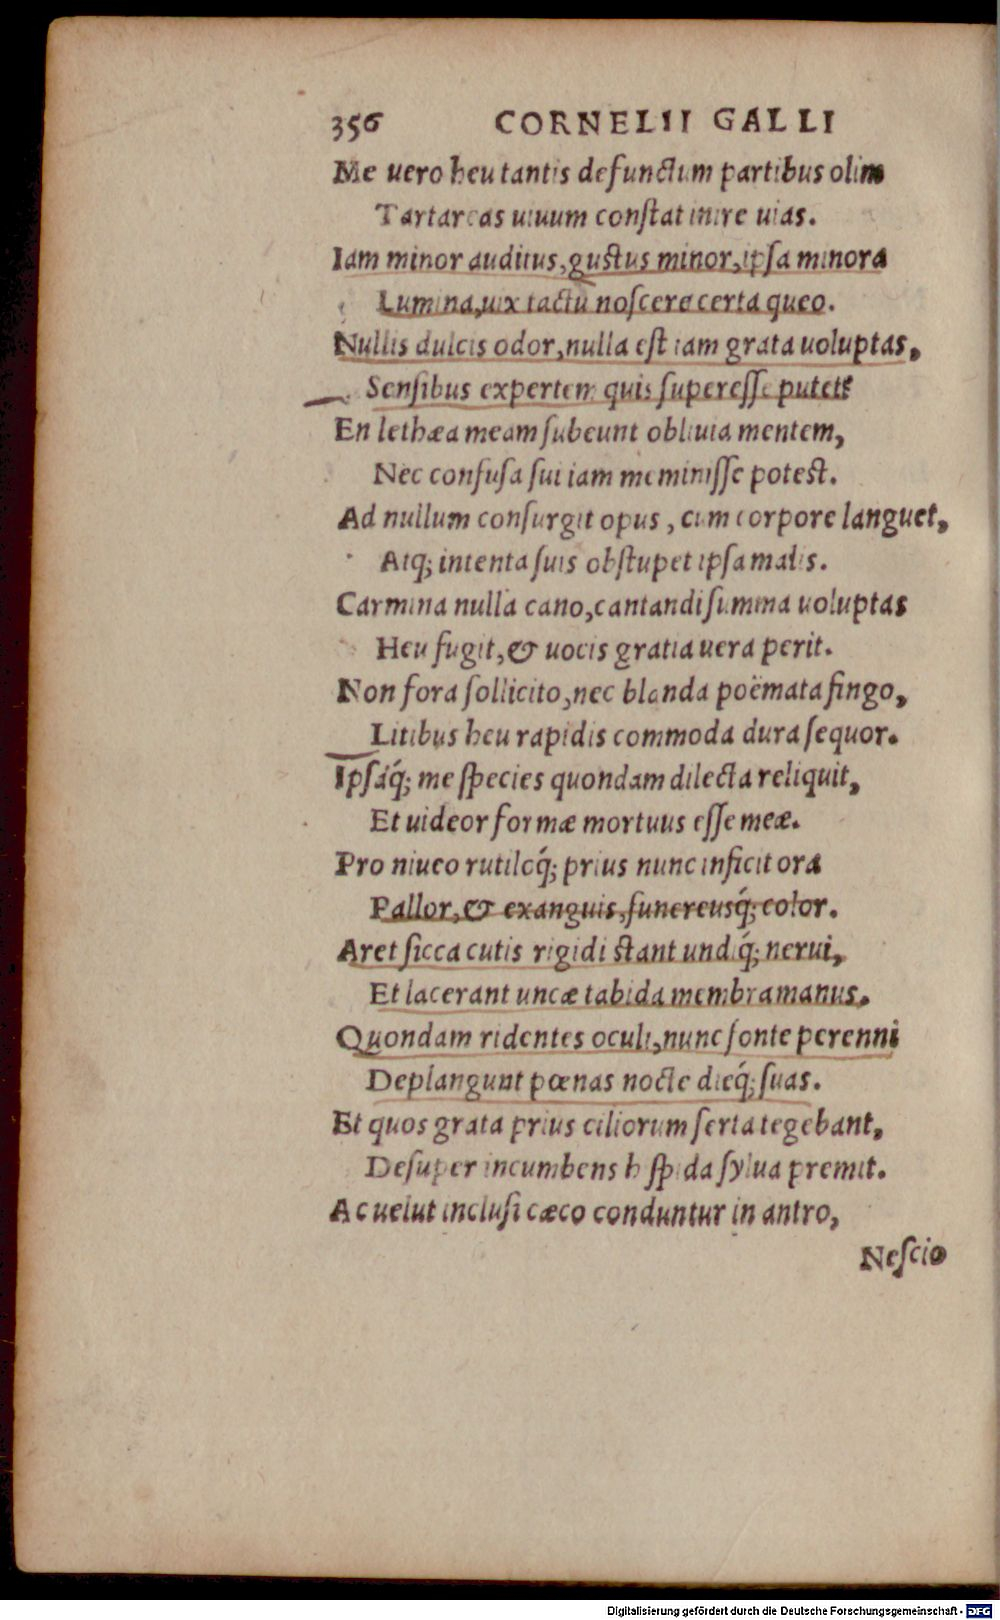 356 CORNELII GALLI
Me uero heu tantis defunctum partibus olim
Tartareas uiuum constat inire uias.
Iam minor auditus, gustus minor, ipsa minora
Lumina, uix tactu noscere certa queo.
Nullis dulcis odor, nulla est iam grata uoluptas,
Sensibus expertem quis superesse putet?
En lethæa meam subeunt obliuia mentem,
Nec confusa sui iam meminisse potest.
Ad nullum consurgit opus, cum corpore languet,
Atq; intenta suis obstupet ipsa malis.
Carmina nulla cano, cantandi summa uoluptas
Heu fugit, & uocis gratia uera perit.
Non fora sollicito, nec blanda poëmata fingo,
Litibus heu rapidis commoda dura sequor.
Ipsaq́; me species quondam dilecta reliquit,
Et uideor formæ mortuus esse meæ.
Pro niueo rutiloq́; prius nunc inficit ora
Pallor, & exanguis, funereusq́; color.
Aret sicca cutis rigidi stant undiq́; nerui,
Et lacerant uncæ tabida membra manus.
Quondam ridentes oculi, nunc fonte perenni
Deplangunt pœnas nocte dieq́; suas.
Et quos grata prius ciliorum serta tegebant,
Desuper incumbens hispida sylua premit.
Ac uelut inclusi cæco conduntur in antro,
Nescio
Digitalisierung gefördert durch die Deutsche Forschungsgemeinschaft - DFG